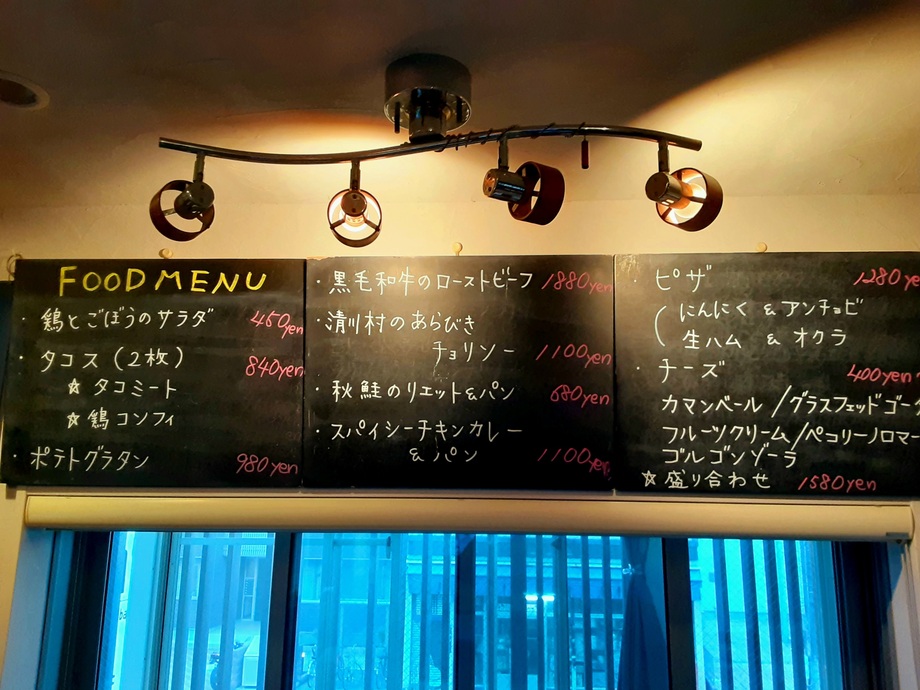 FOOD MENU
・鶏とごぼうのサラダ 450yen
・タコス（2枚） 840yen
☆タコミート
☆鶏コンフィ
・ポテトグラタン 980yen
・黒毛和牛のローストビーフ 1880yen
・清川村のあらびき
チョリソー 1100yen
・秋鮭のリエット&パン 680yen
・スパイシーチキンカレー
& パン 1100yen
・ピザ 1280ye
にんにく & アンチョビ
生ハム & オクラ
・チーズ 400yen~
カマンベール/グラスフェッドゴー
フルーツクリーム/ペコリーノロマー
ゴルゴンゾーラ
☆盛り合わせ 1580yen